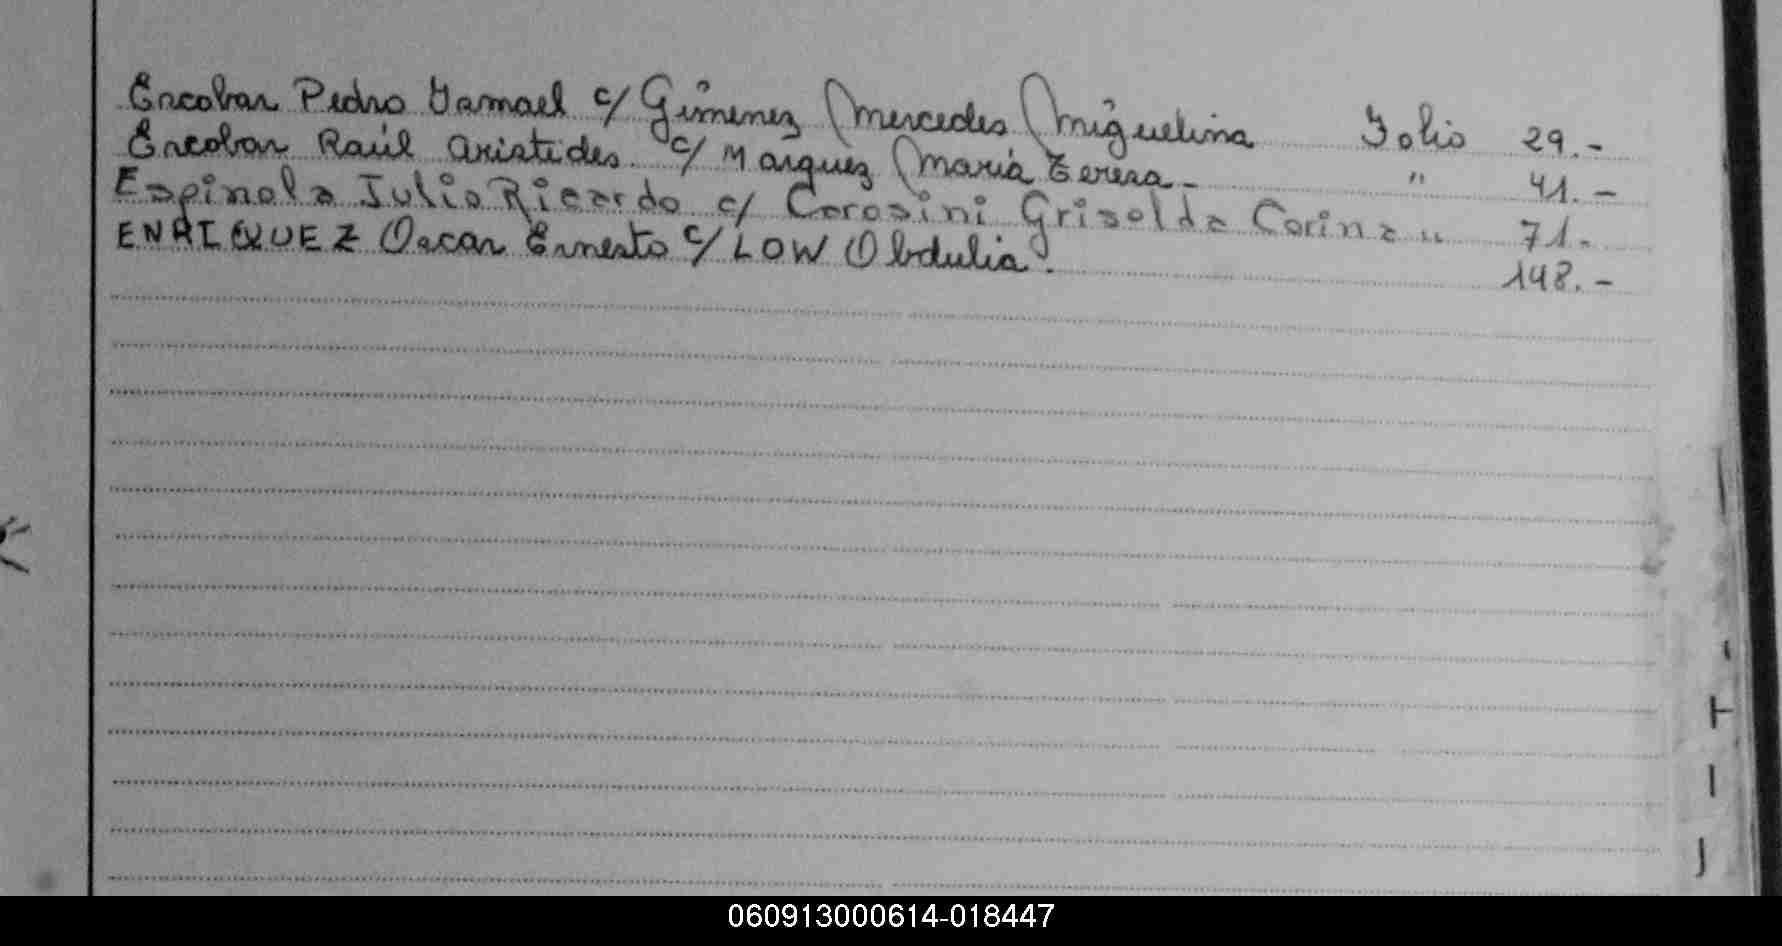 Escobar Pedro Ysmael c/ Gimenez Mercedes Miguelina Folio 29.-
Escobar Raúl Aristides c/ Marquez María Teresa - " 41.-
Espinola Julio Ricardo c/ Corosini Griselda Corina " 71.-
ENRIQUEZ Oscar Ernesto c/ LOW Obdulia. 148.-
H
I
J
060913000614-018447